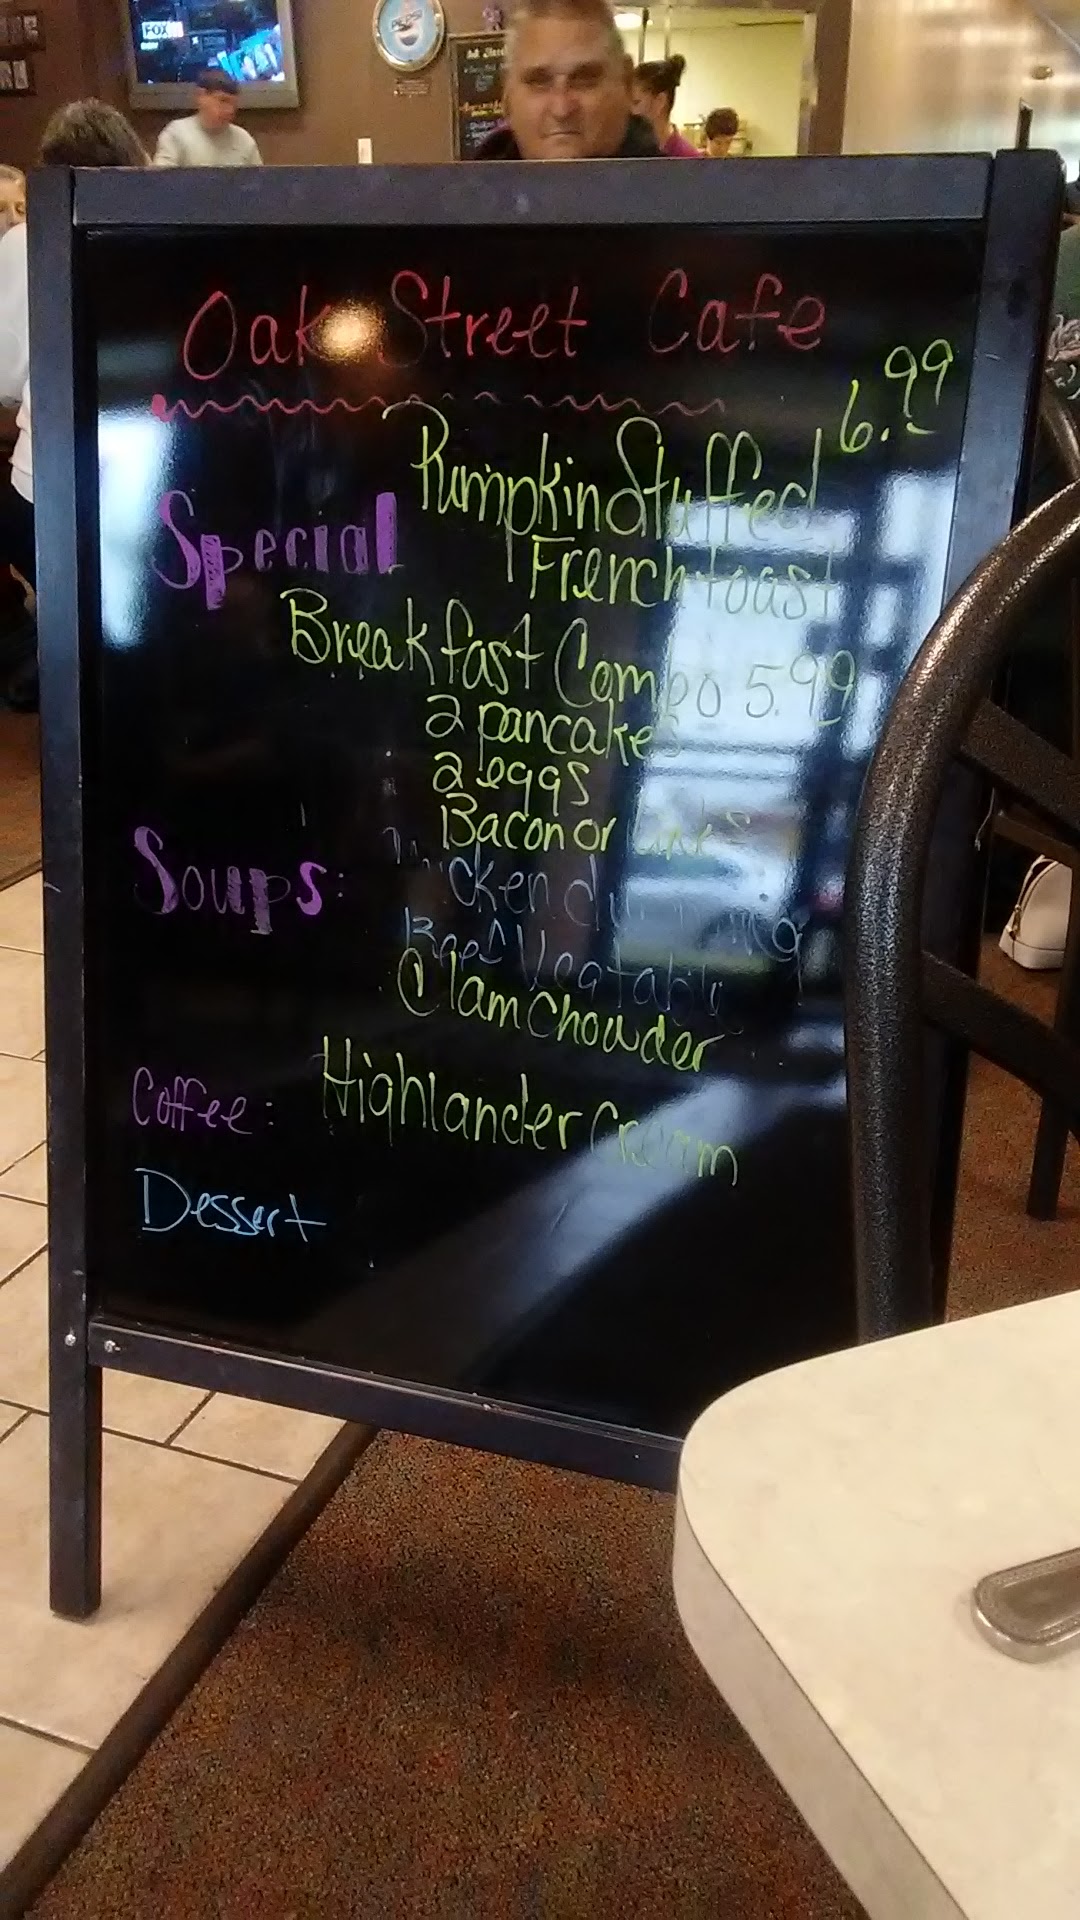 FOX
PEPSI
Oak Street Cafe
6.99
Pumpkin Stuffed
Special
French toast
Breakfast Combo 5.99
2 pancakes
2 eggs
Bacon or Links
Soups:
Beef Vegtable
Clam Chowder
Coffee: Highlander Cream
Dessert